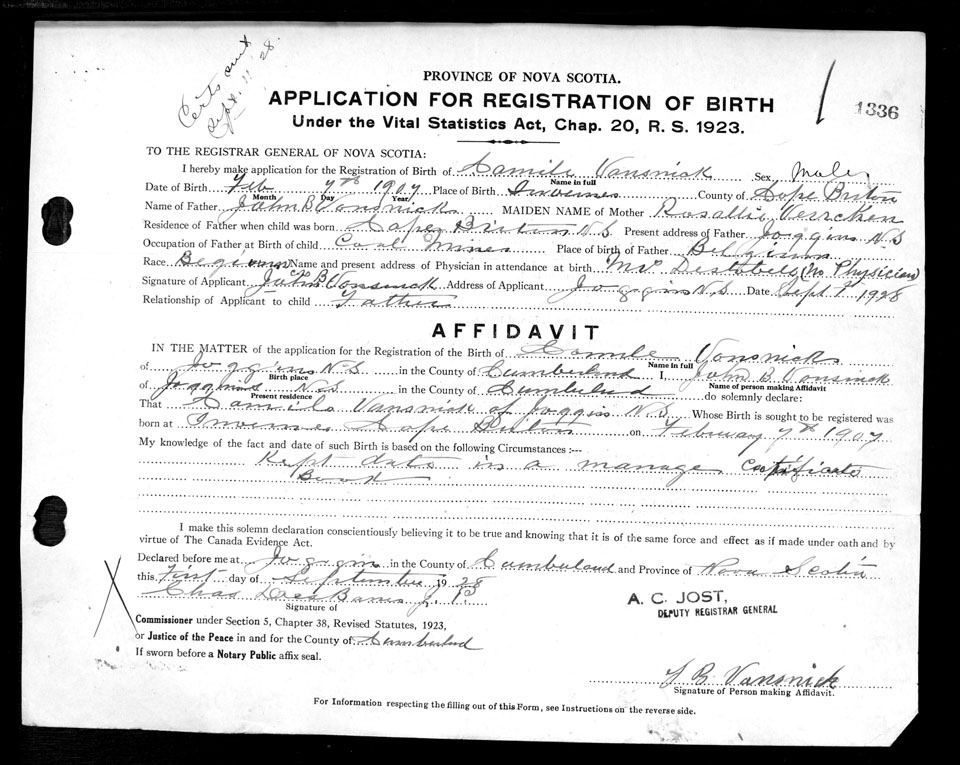 Certs out
Sept. 11. 28.
PROVINCE OF NOVA SCOTIA.
APPLICATION FOR REGISTRATION OF BIRTH
Under the Vital Statistics Act, Chap. 20, R. S. 1923.
1336
TO THE REGISTRAR GENERAL OF NOVA SCOTIA:
I hereby make application for the Registration of Birth of Camile Vansnick Sex Male
Name in full
Date of Birth Feb 7th 1907 Place of Birth Invernes County of Cape Briton
Month Day Year
Name of Father John B Vansnick MAIDEN NAME of Mother Rosallie
Residence of Father when child was born Cape Briton N.S Present address of Father Joggins N.S
Occupation of Father at Birth of child Coal Miner Place of birth of Father Belgium
Race Name and present address of Physician in attendance at birth (No Physician)
Signature of Applicant John B Vansnick Address of Applicant Joggins N.S Date Sept 1st 1928
Relationship of Applicant to child Father
AFFIDAVIT
IN THE MATTER of the application for the Registration of the Birth of Camile Vansnick
Name in full
of Joggins N.S in the County of Cumberland I, John B Vansnick
Birth place
Name of person making Affidavit
of Joggins N.S in the County of Cumberland do solemnly declare:
Present residence
That Camile Vansnick of Joggins N.S Whose Birth is sought to be registered was
born at Invernes Cape Briton on February 7th 1907
My knowledge of the fact and date of such Birth is based on the following Circumstances :---
Kept date in a marrage certificate
Book
I make this solemn declaration conscientiously believing it to be true and knowing that it is of the same force and effect as if made under oath and by
virtue of The Canada Evidence Act.
Declared before me at Joggins in the County of Cumberland and Province of Nova Scotia
this First day of September 1928
Chas DesBarres J.P.
Signature of
A. C. JOST,
DEPUTY REGISTRAR GENERAL
Commissioner under Section 5, Chapter 38, Revised Statutes, 1923,
or Justice of the Peace in and for the County of Cumberland
If sworn before a Notary Public affix seal.
J B Vansnick
Signature of Person making Affidavit.
For Information respecting the filling out of this Form, see Instructions on the reverse side.